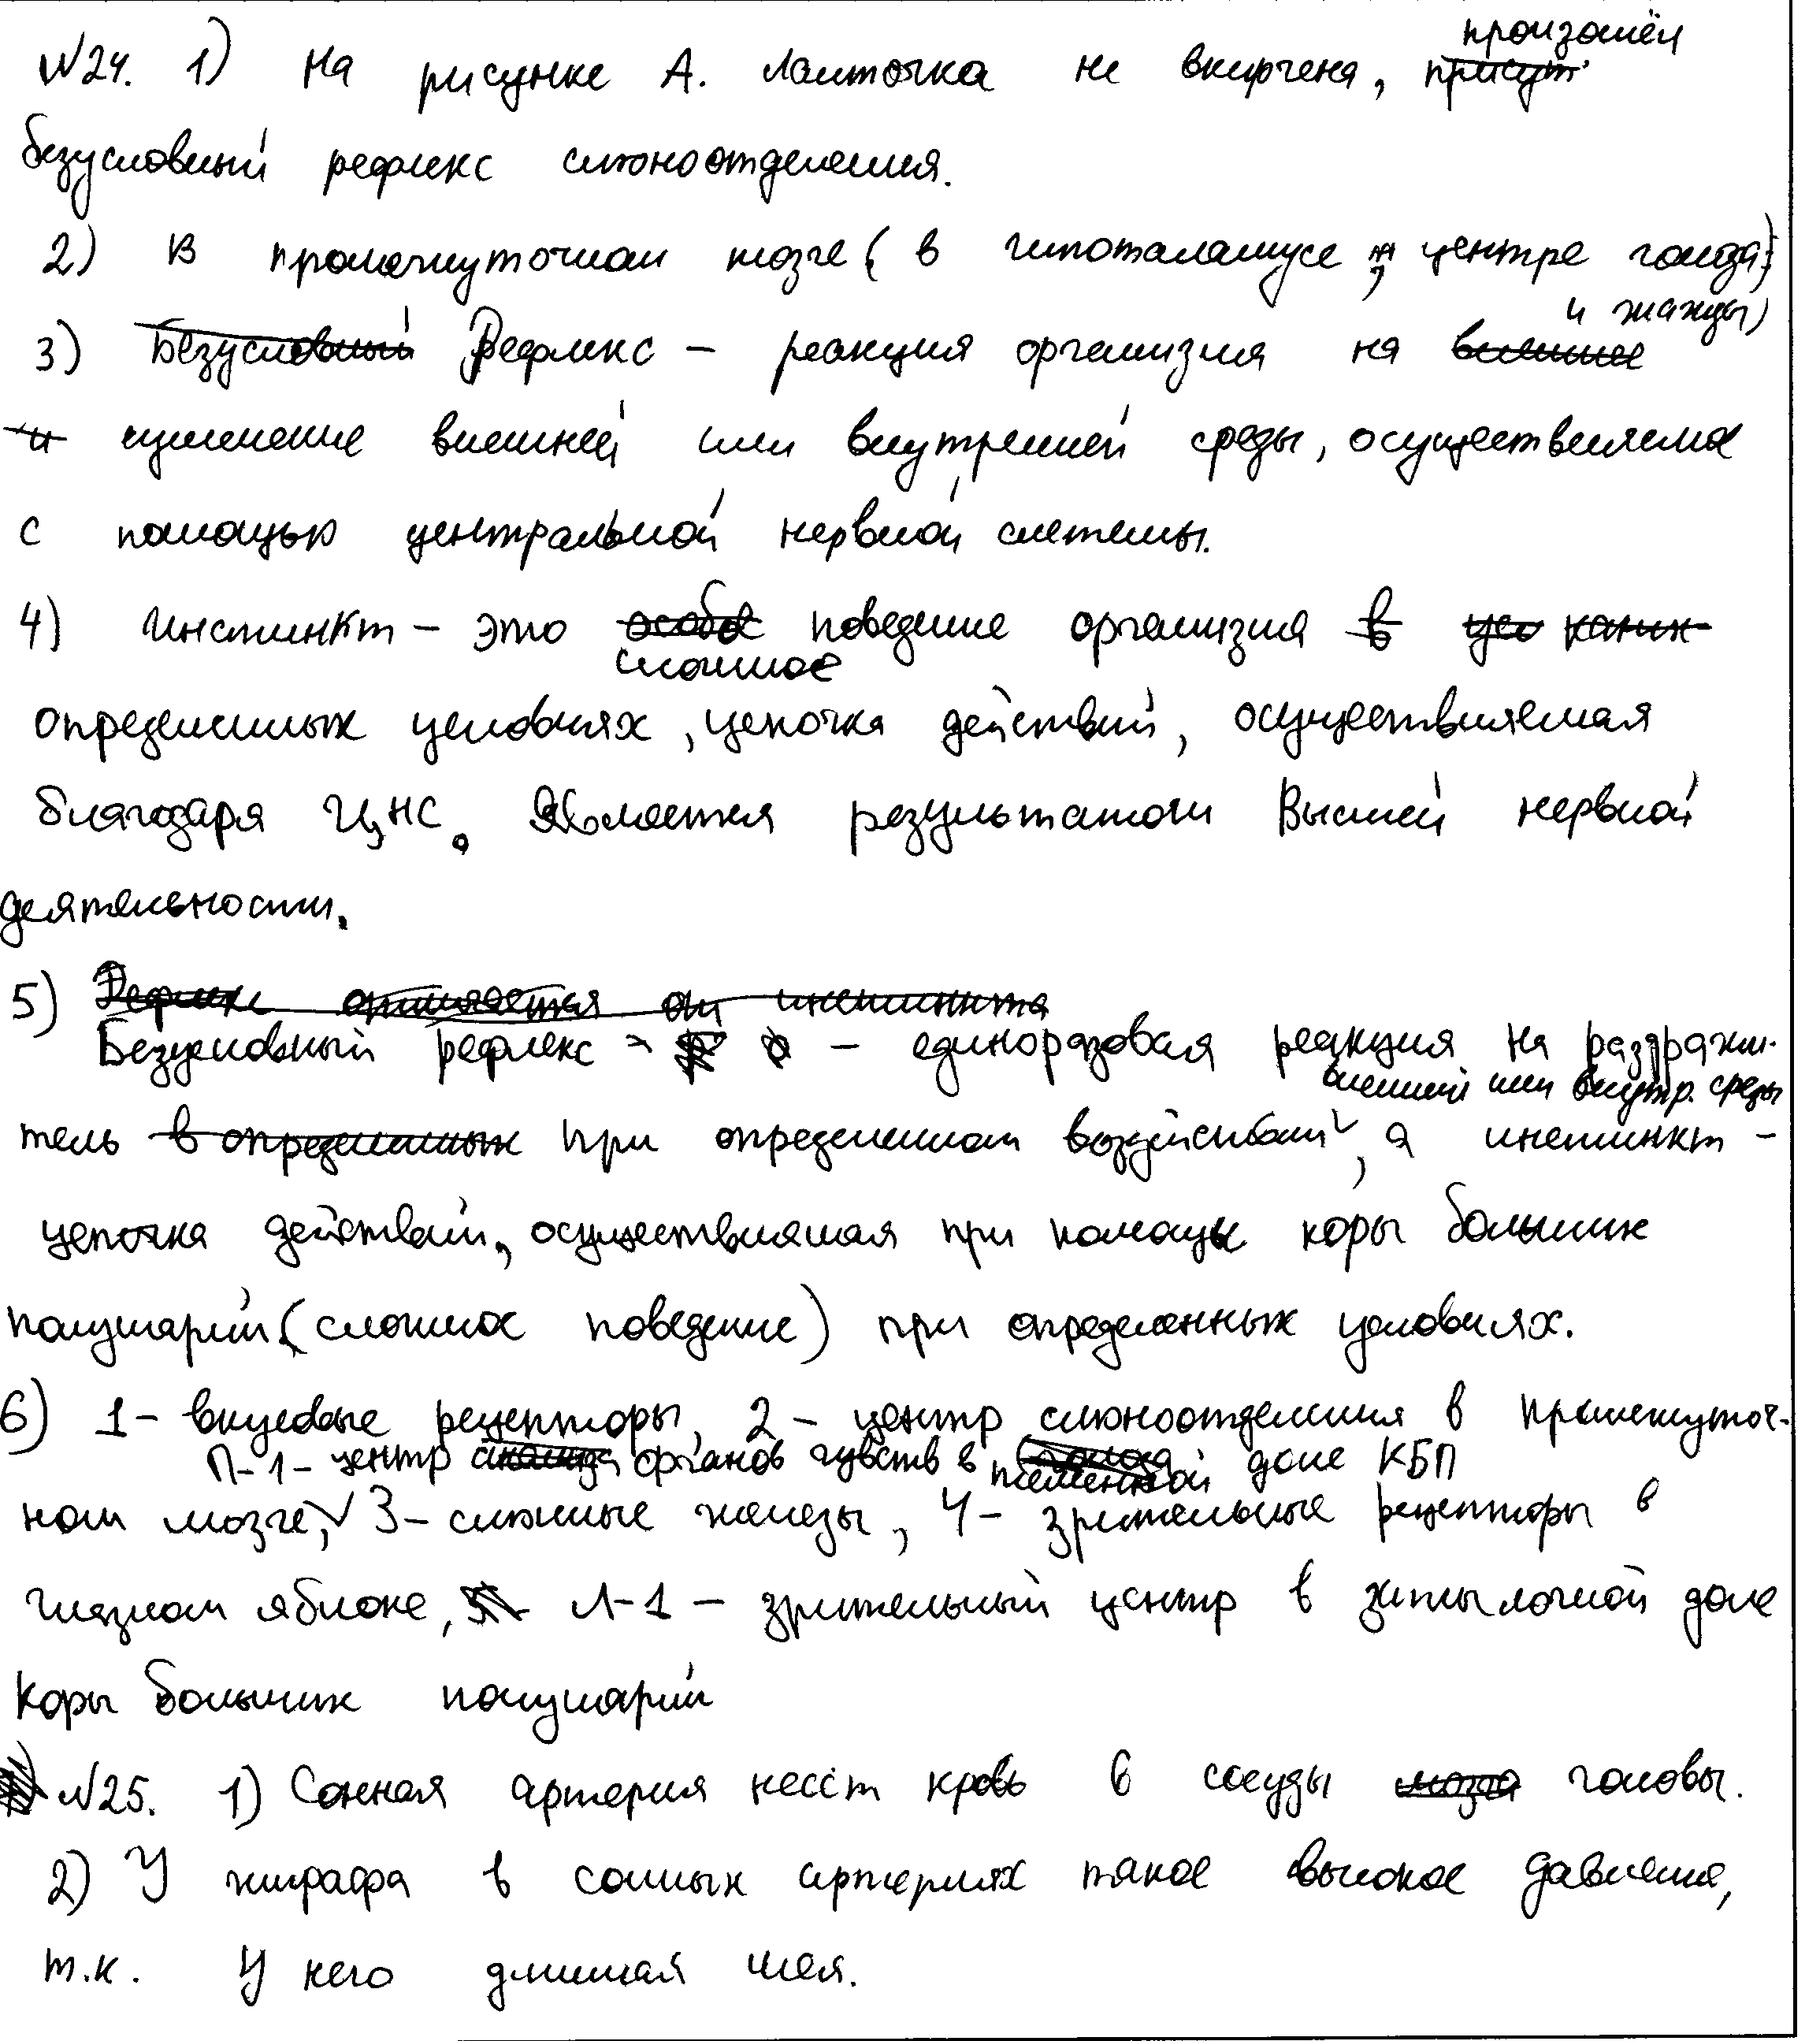 №24. 1) На рисунке А. лампочка не включена, произошёл
безусловный рефлекс слюноотделения.
2) В промежуточном мозге (в гипоталамусе, центре голода
и жажды)
3) Безусловный Рефлекс – реакция организма на внешнее
и изменение внешней или внутренней среды, осуществляемая
с помощью центральной нервной системы.
4) Инстинкт – это особое поведение организма в усл каких-
сложное
определенных условиях, цепочка действий, осуществляемая
благодаря ЦНС. Является результатом Высшей нервной
деятельности.
5) Рефлекс отличается от инстинкта
Безусловный рефлекс – единоразовая реакция на раздражи-
внешней или внутр. среды
тель в определенных при определенном воздействии, а инстинкт –
цепочка действий, осуществляемая при помощи коры больших
полушарий (сложное поведение) при определенных условиях.
6) 1 – вкусовые рецепторы, 2 – центр слюноотделения в промежуточ-
П-1 – центр органов чувств в теменной доле КБП
ном мозге, 3 – слюнные железы, 4 – зрительные рецепторы в
глазном яблоке, Л-1 – зрительный центр в затылочной доле
коры больших полушарий
№25. 1) Сонная артерия несёт кровь в сосуды мозга головы.
2) У жирафа в сонных артериях такое высокое давление,
т.к. У него длинная шея.